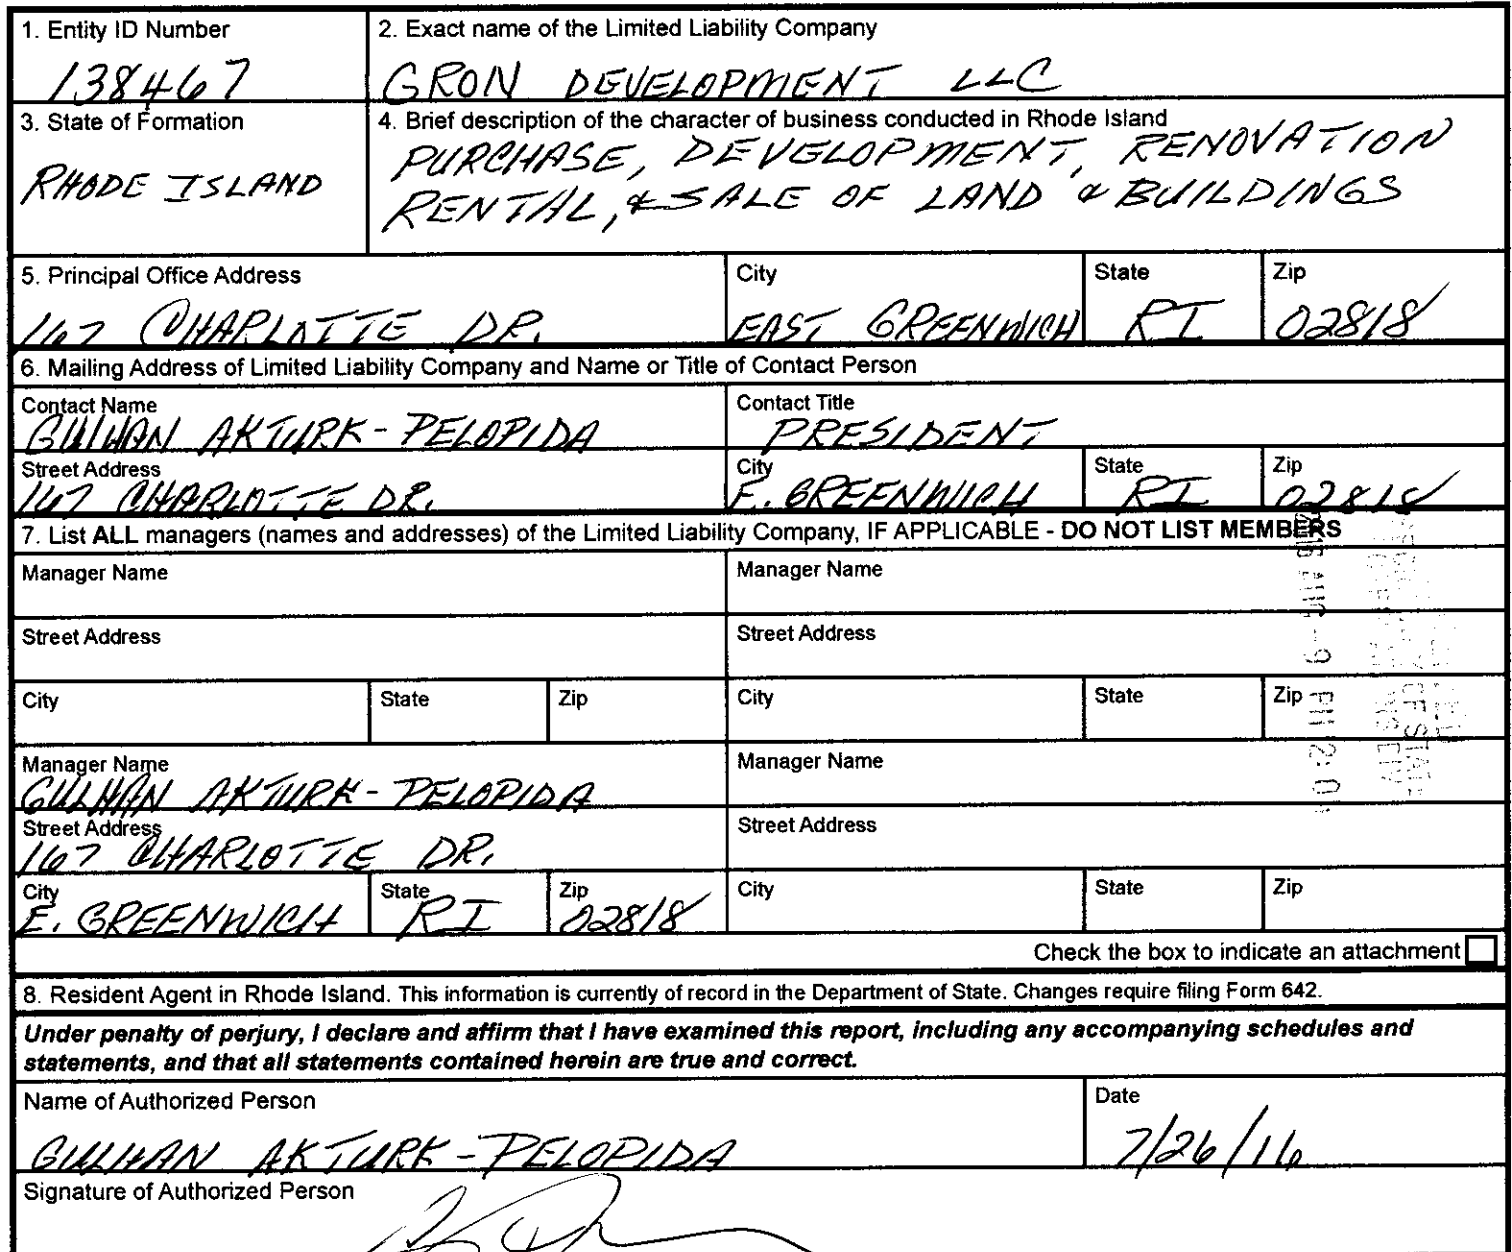 1. Entity ID Number
138467
2. Exact name of the Limited Liability Company
GRON DEVELOPMENT LLC
3. State of Formation
RHODE ISLAND
4. Brief description of the character of business conducted in Rhode Island
PURCHASE, DEVELOPMENT, RENOVATION
RENTAL, & SALE OF LAND & BUILDINGS
5. Principal Office Address
167 CHARLOTTE DR.
City
EAST GREENWICH
State
RI
Zip
02818
6. Mailing Address of Limited Liability Company and Name or Title of Contact Person
Contact Name
GULHAN AKTURK-PELOPIDA
Contact Title
PRESIDENT
Street Address
167 CHARLOTTE DR.
City
E. GREENWICH
State
RI
Zip
02818
7. List ALL managers (names and addresses) of the Limited Liability Company, IF APPLICABLE - DO NOT LIST MEMBERS
Manager Name
Manager Name
Street Address
Street Address
City State Zip
City State Zip
Manager Name
GULHAN AKTURK-PELOPIDA
Manager Name
Street Address
167 CHARLOTTE DR.
Street Address
City
E. GREENWICH
State
RI
Zip
02818
City State Zip
Check the box to indicate an attachment
8. Resident Agent in Rhode Island. This information is currently of record in the Department of State. Changes require filing Form 642.
Under penalty of perjury, I declare and affirm that I have examined this report, including any accompanying schedules and
statements, and that all statements contained herein are true and correct.
Name of Authorized Person
GULHAN AKTURK-PELOPIDA
Date
7/26/16
Signature of Authorized Person
AUG -9 PM
OF STATE